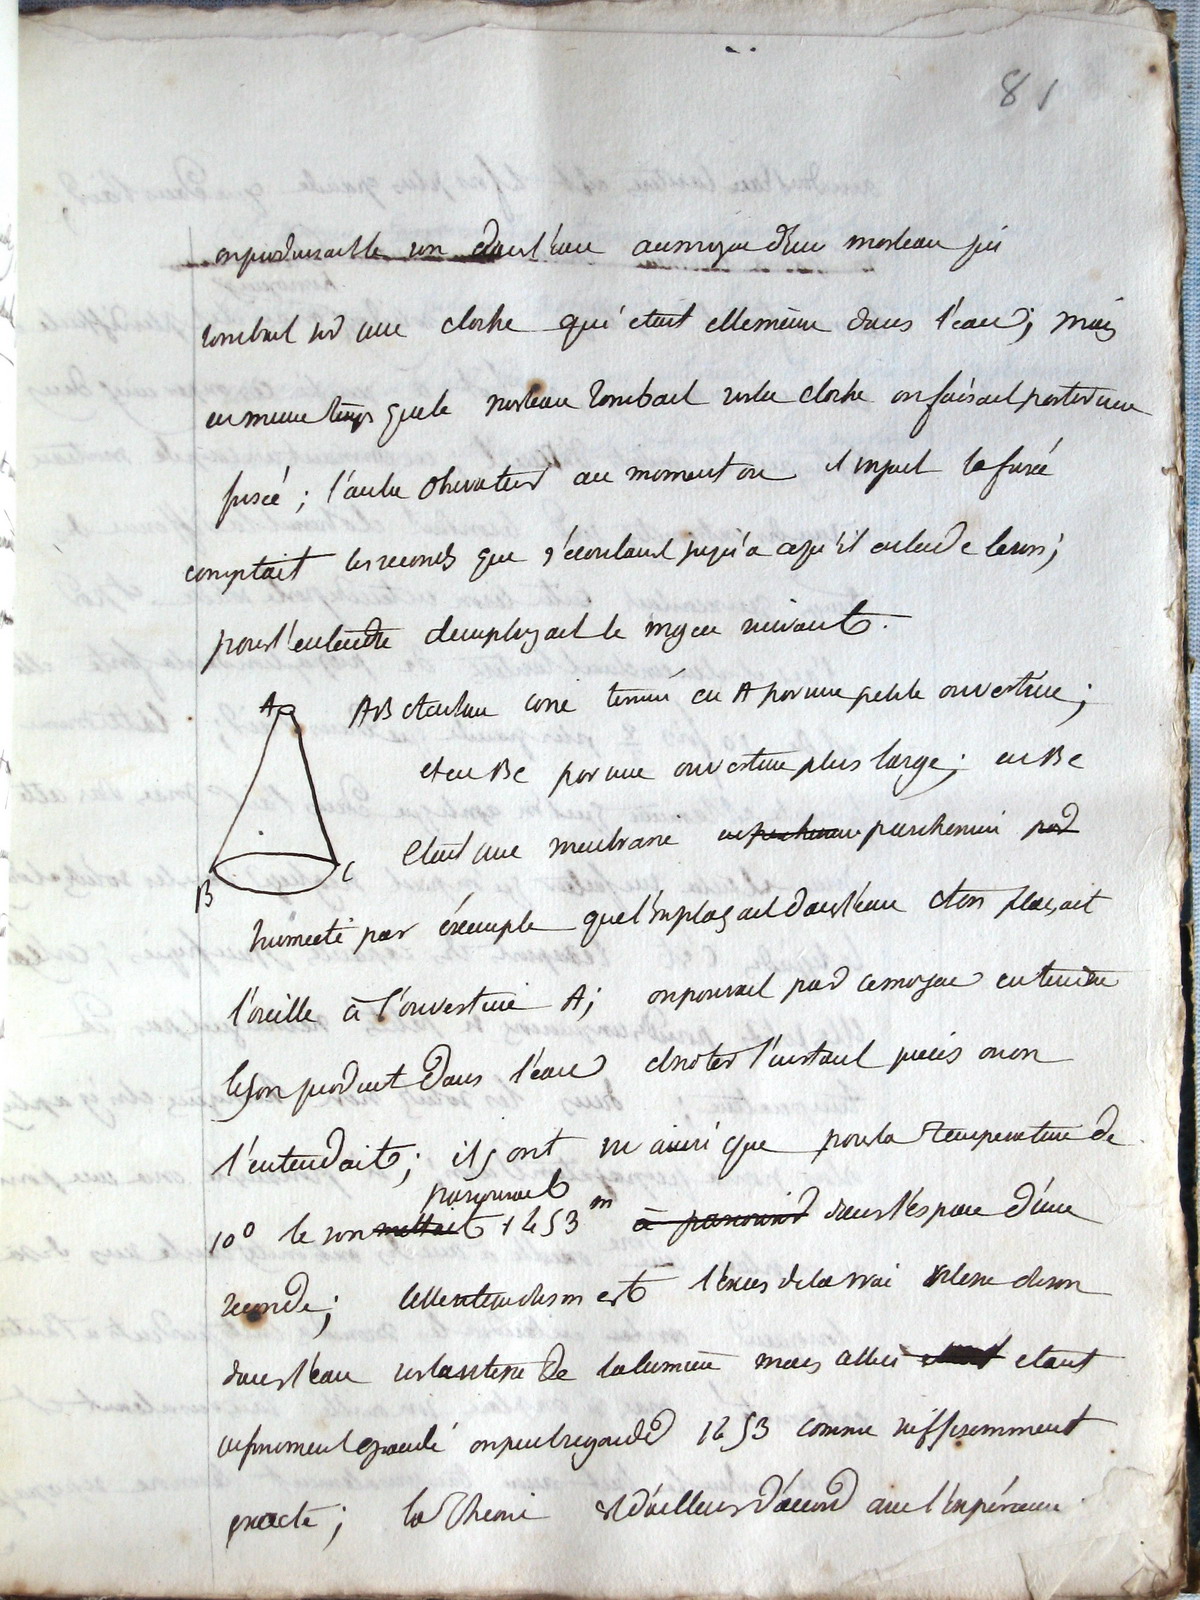 81
on produisait le son dans l'eau au moyen d'un marteau qui
tombait sur une cloche qui etait elle meme dans l'eau; mais
en meme temps que le marteau tombait sur la cloche on faisait partir une
fusée; l'autre observateur au moment ou il voyait la fusée
comptait les seconds que s'ecoulaient jusqu'a ce qu'il entende le son;
pour l'entendre il employait le moyen suivant.
A ABC etait un cone terminé en A par une petite ouverture;
et en BC par une ouverture plus large; en BC
etait une membrane en parchemin parchemin par
B C
humecté par éxemple que l'on plaçait dans l'eau et on plaçait
l'oreille à l'ouverture A; on pouvait par ce moyen entendre
le son produit dans l'eau et noter l'instant precis ou on
l'entendait; ils ont vu ainsi que pour la temperature de
parcourait
10° le son mettait 1453 m à parcourir dans l'espace d'une
seconde; cette vitesse du son est l'exces de la vrai vitesse du son
dans l'eau sur la vitesse de la lumiere mais celle ci etant
infiniment grande on peut regarder 1453 comme suffisamment
exacte; la Theorie est d'ailleurs d'accord avec l'expérience